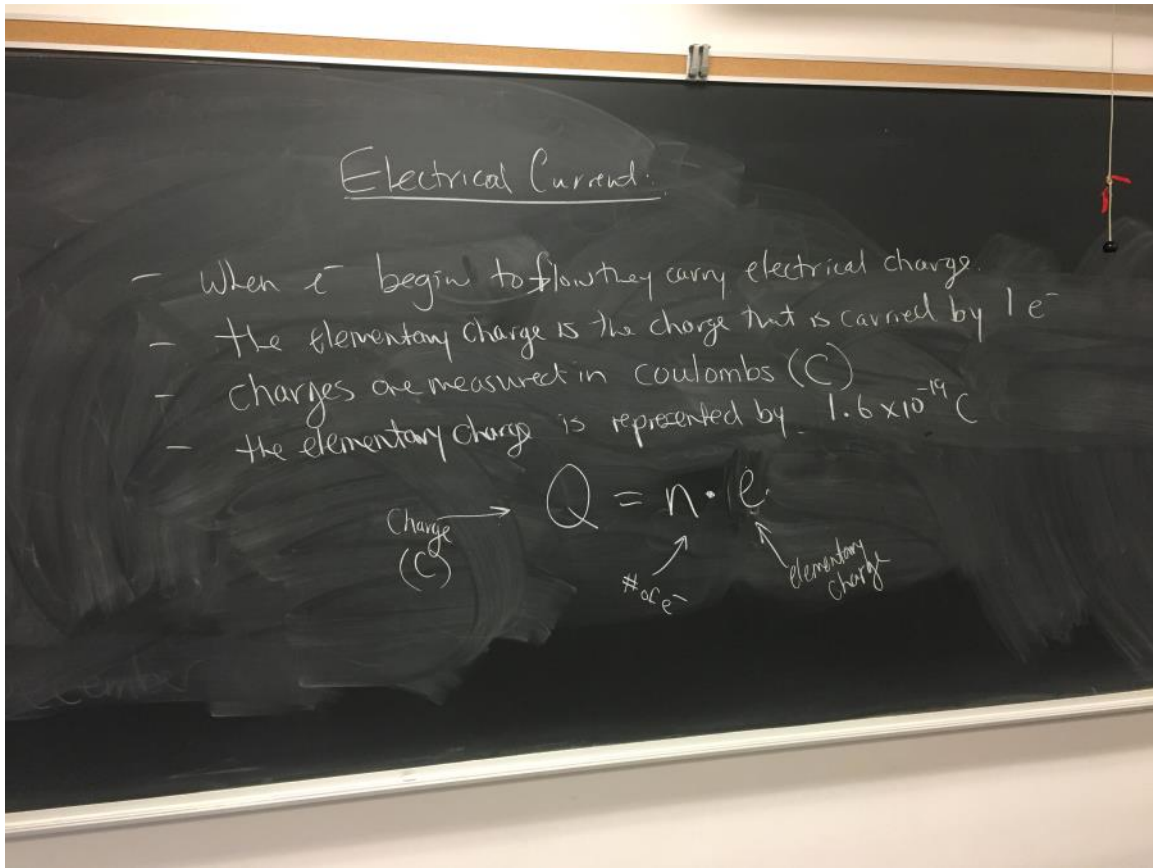 Electrical Current.
- When e⁻ begin to flow they carry electrical charge.
- the elementary charge is the charge that is carried by 1 e⁻
- charges are measured in coulombs (C)
- the elementary charge is represented by 1.6 x 10⁻¹⁹ C
Charge (C) → Q = n · e
# of e⁻
elementary charge